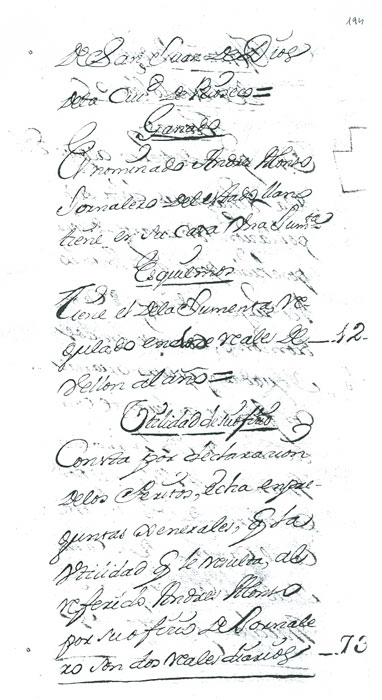 194
de San Juan de Dios
de la Ciud. de Rioseco =
Ganado
El nominado Andres Alonso
Jornalero del estado llano
tiene en su casa Una Jumta
Esquilmos
Tiene el de la Jumenta re-
gulado en doze reales de 12
vellon al año =
Utilidad de su ofizio
Consta por declarazion
de los Peritos, echa en pre-
guntas Generales, q la
Utilidad q le resulta, al
referido Andres Alonso
por su ofizio de Jornale
ro son dos reales diarios 73